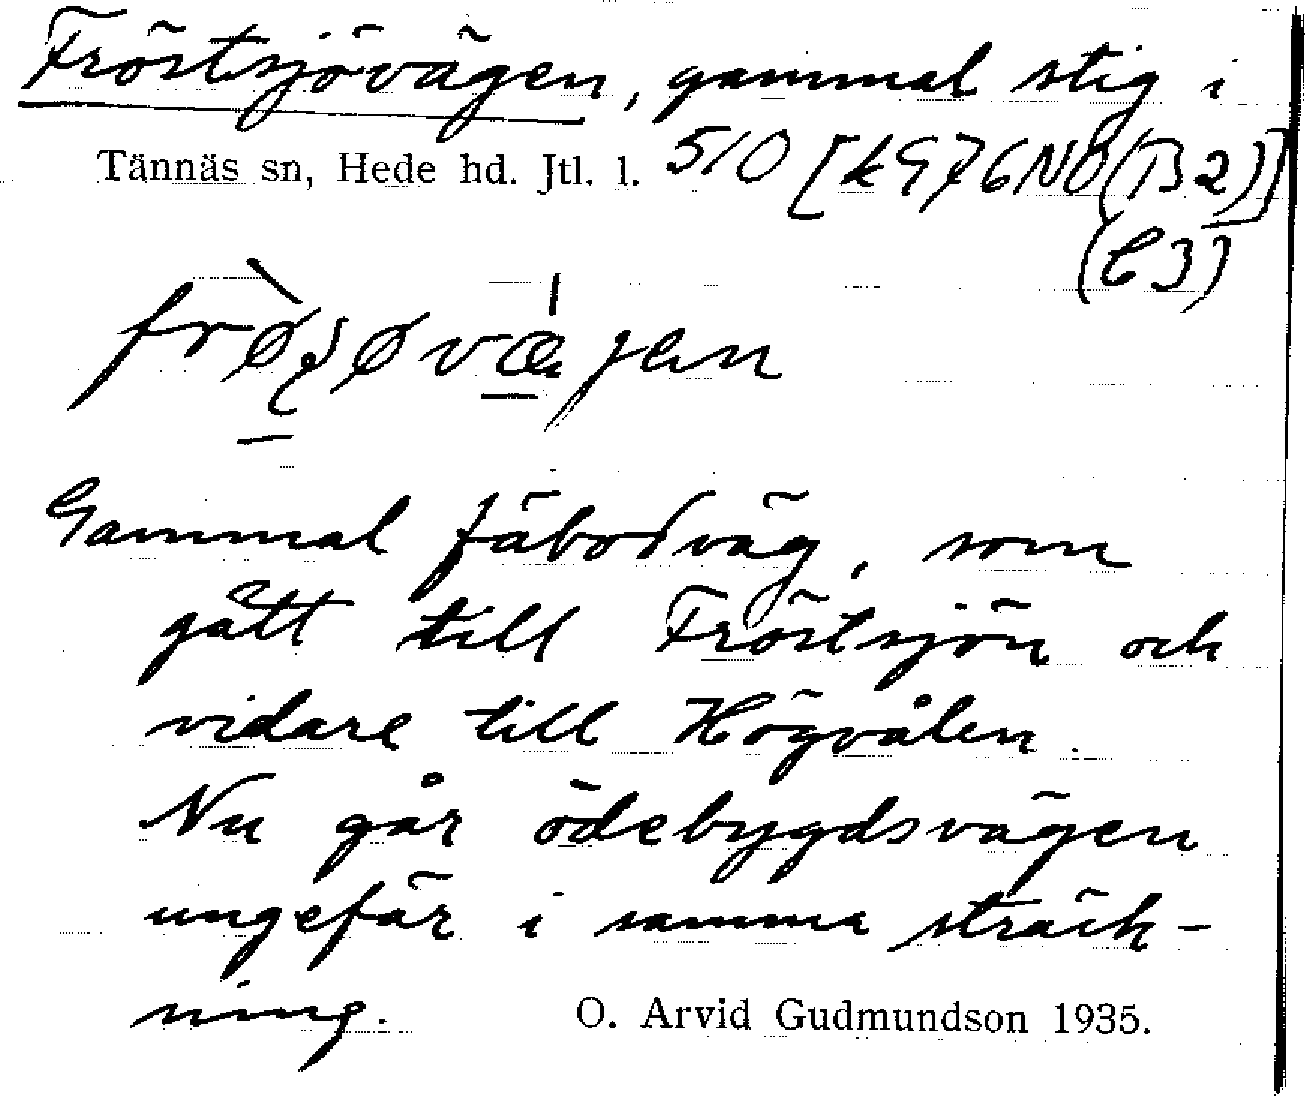 Fröstsjövägen, gammal stig i
Tännäs sn, Hede hd. Jtl. l. 510 [k976NO(B2)]
(C3)
Gammal fäbodväg, som
gått till Fröstsjön och
vidare till Högvålen.
Nu går ödebygdsvägen
ungefär i samma sträck-
ning. O. Arvid Gudmundson 1935.